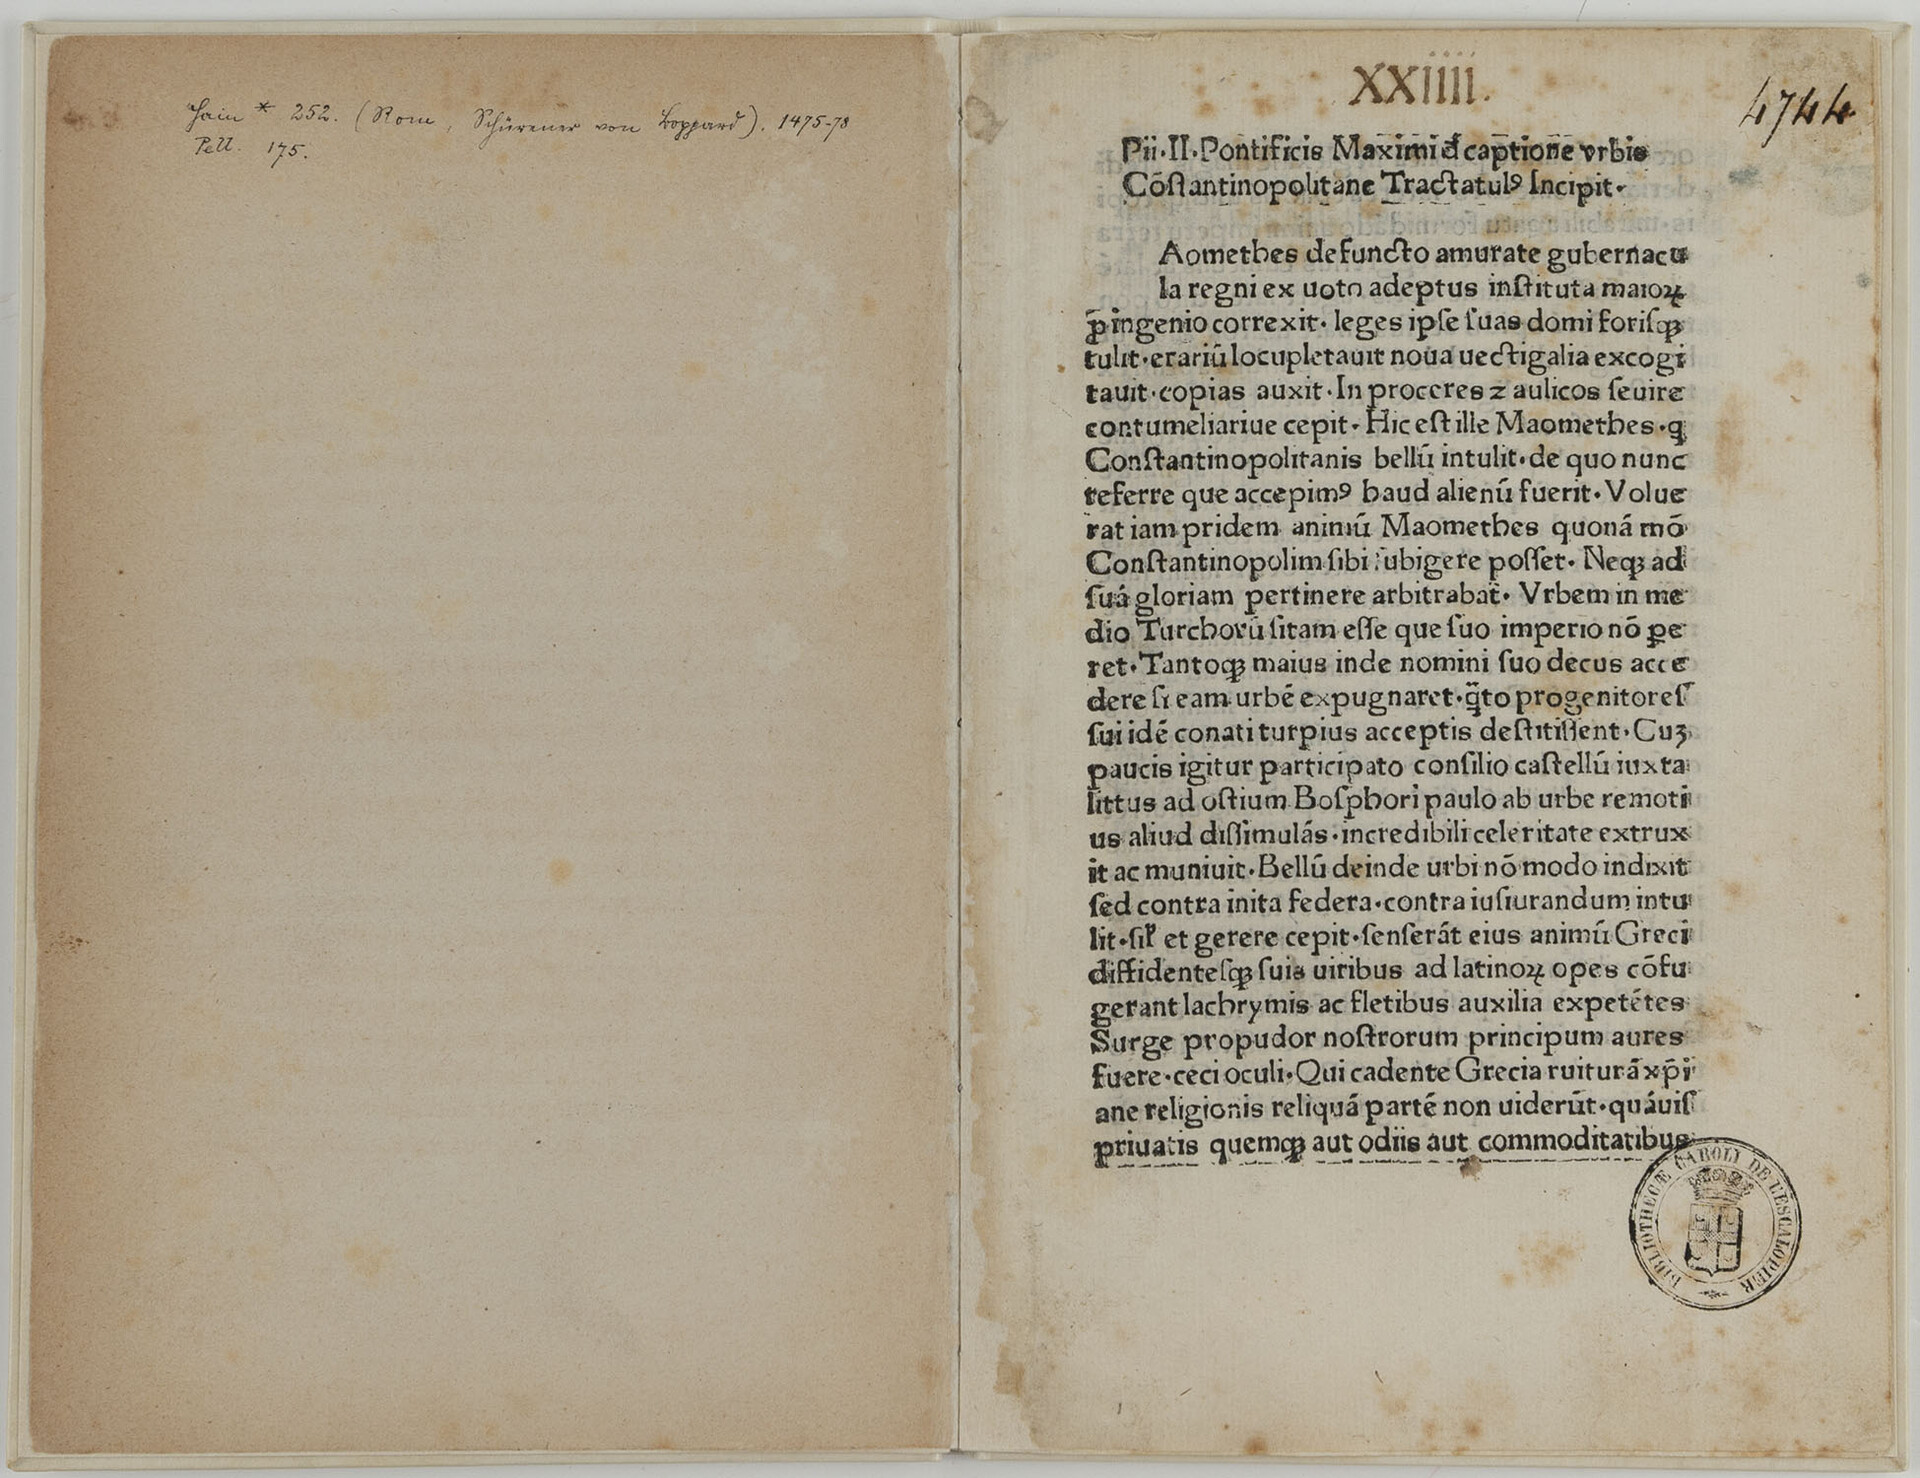 Hain * 252. (Rom, Schürener von Boppard). 1475-78
Pell. 175.
XXIIII.
4744
Pii·II·Pontificis Maximi đ captione vrbis
Cōſtantinopolitane Tractatulꝰ Incipit·
Aomethes defuncto amurate gubernacu
la regni ex uoto adeptus inſtituta maioꝝ
p̄ ingenio correxit· leges ipſe ſuas domi foriſqꝫ
tulit·erariū locupletauit noua uectigalia excogi
tauit·copias auxit·In proceres ⁊ aulicos ſeuire
contumeliariue cepit·Hic eſt ille Maomethes·q
Conſtantinopolitanis bellū intulit·de quo nunc
referre que accepimꝰ haud alienū fuerit·Volue
rat iam pridem animū Maomethes quonā mō
Conſtantinopolim ſibi ſubigere poſſet· Neqꝫ ad
ſuā gloriam pertinere arbitrabat̄· Vrbem in me
dio Turchorū ſitam eſſe que ſuo imperio nō ꝑe
ret·Tantoqꝫ maius inde nomini ſuo decus acce
dere ſi eam urbē expugnaret·q̄to progenitoreſ
ſui idē conati turpius acceptis deſtitiſſent·Cuꝫ
paucis igitur participato conſilio caſtellū iuxta
littus ad oſtium Boſphori paulo ab urbe remoti
us aliud diſſimulās·incredibili celeritate extrux
it ac muniuit·Bellū deinde urbi nō modo indixit
ſed contra inita federa·contra iuſiurandum intu
lit·ſil̓ et gerere cepit·ſenſerāt eius animū Greci
diffidenteſqꝫ ſuis uiribus ad latinoꝝ opes cōfu
gerant lachrymis ac fletibus auxilia expetētes
Surge propudor noſtrorum principum aures
fuere·ceci oculi·Qui cadente Grecia ruiturā xp̄i
ane religionis reliquā partē non uiderūt·quāuiſ
priuatis quemqꝫ aut odiis aut commoditatibus
BIBLIOTHECÆ CAROLI DE L'ESCALOPIER